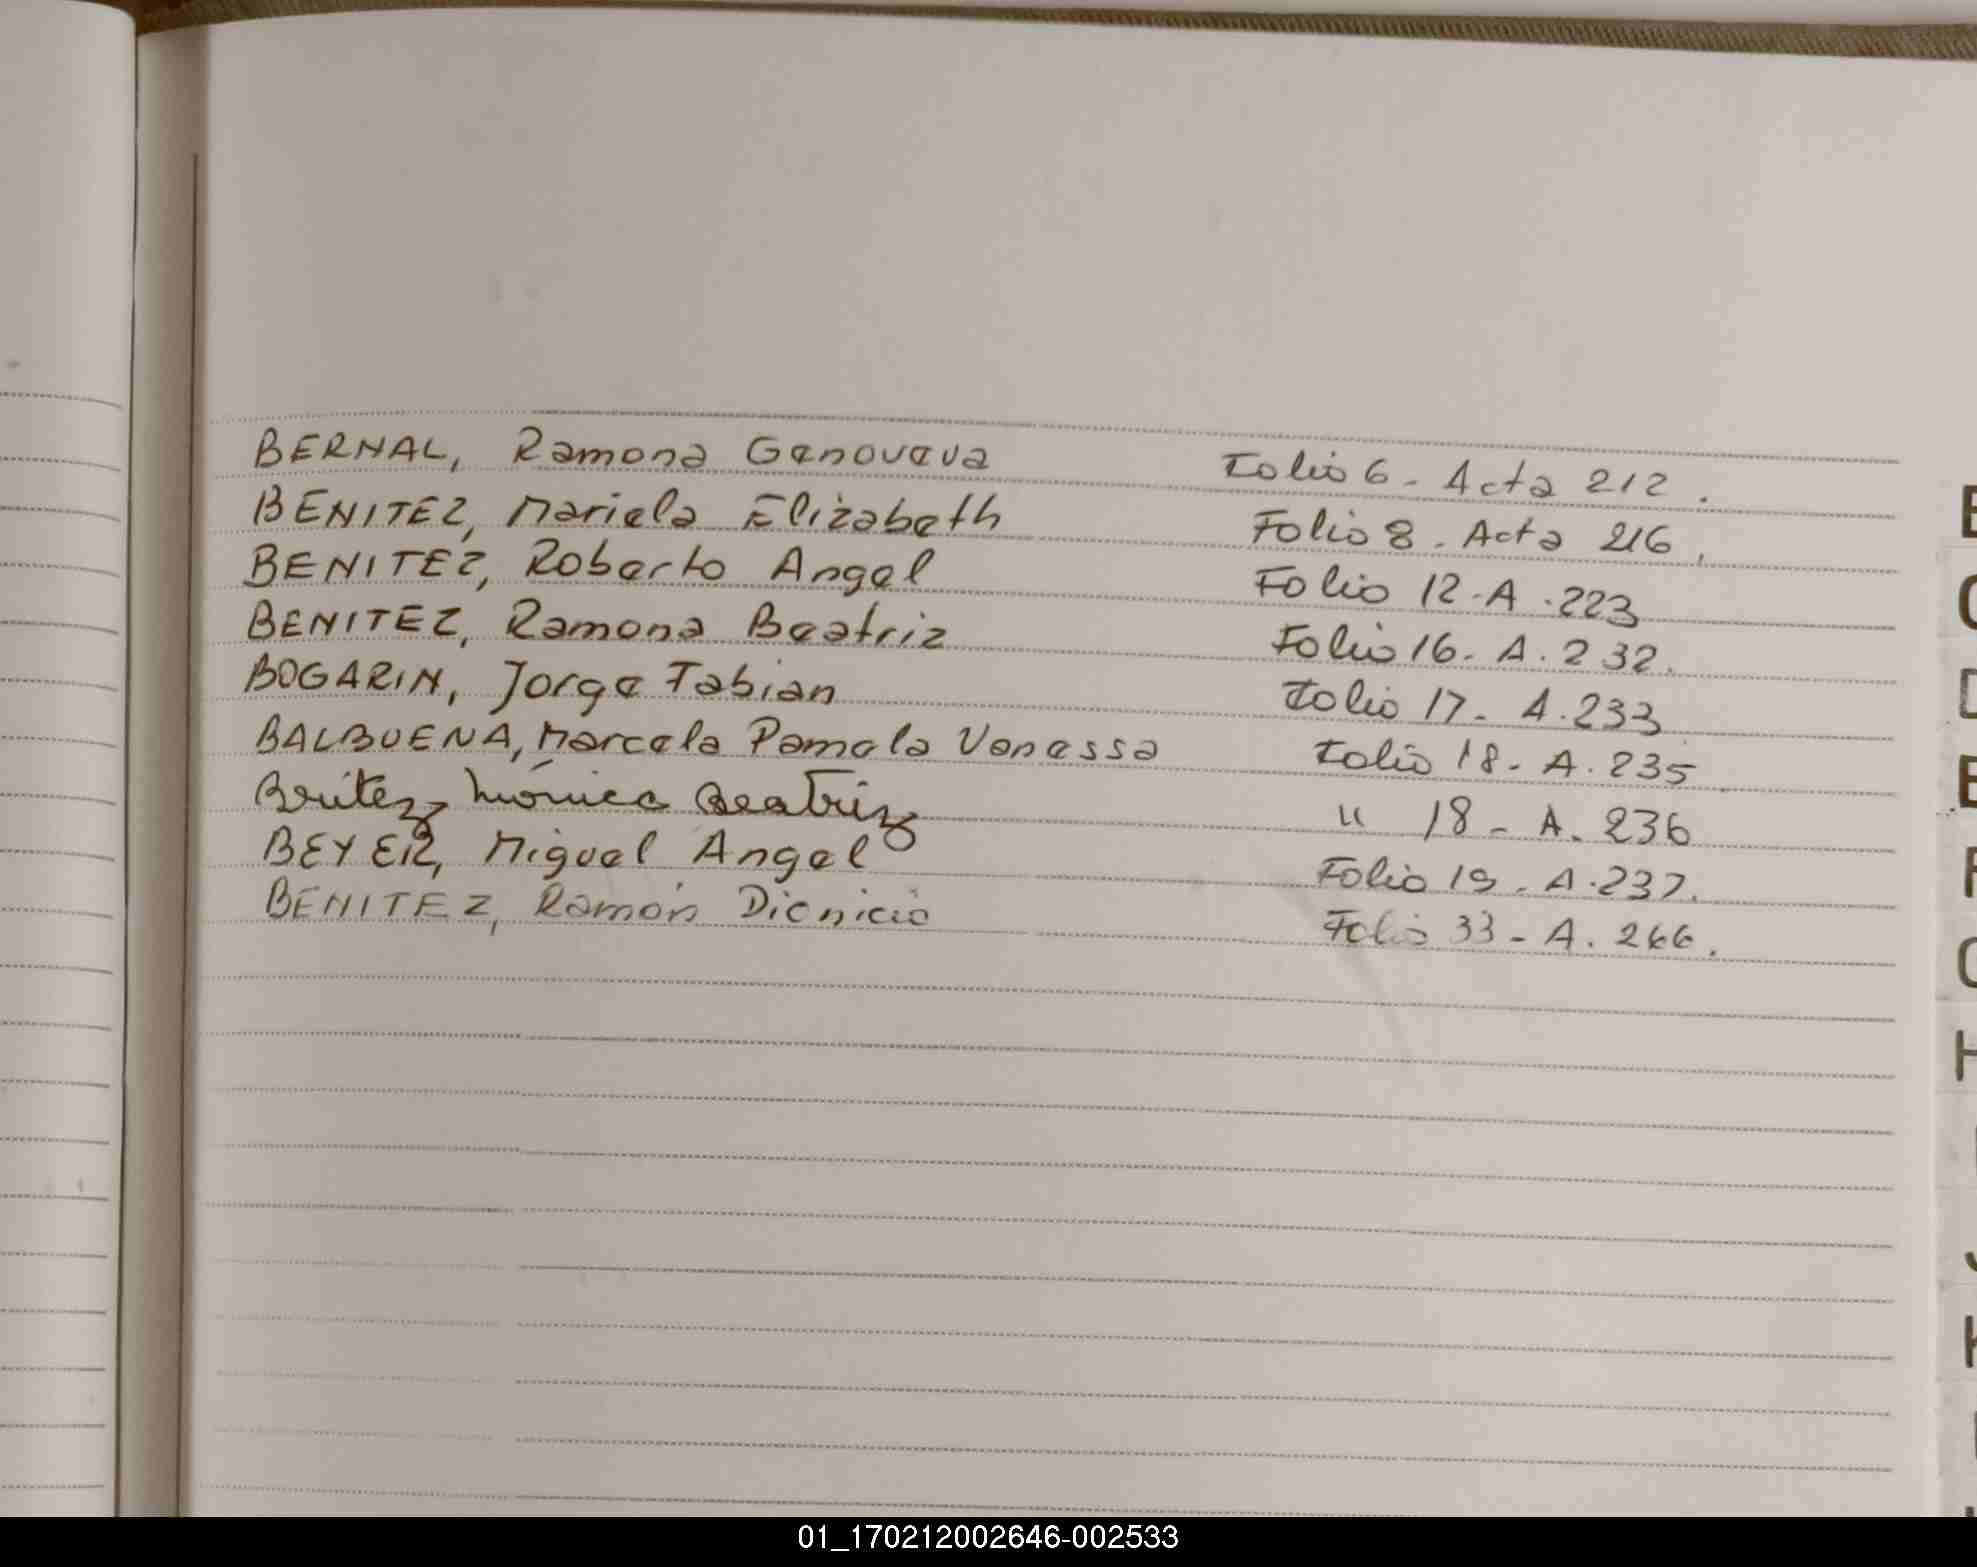 BERNAL, Ramona Genoveva Folio 6 - Acta 212.
BENITEZ, Mariela Elizabeth Folio 8 - Acta 216.
BENITEZ, Roberto Angel Folio 12 - A. 223
BENITEZ, Ramona Beatriz Folio 16 - A. 232.
BOGARIN, Jorge Fabian Folio 17 - A. 233
BALBUENA, Marcela Pamela Vanessa Folio 18 - A. 235.
Benitez Mónica Beatriz " 18 - A. 236
BEYER, Miguel Angel Folio 19 - A. 237.
BENITEZ, Ramón Dionicio Folio 33 - A. 266.
E
F
H
K
01_170212002646-002533